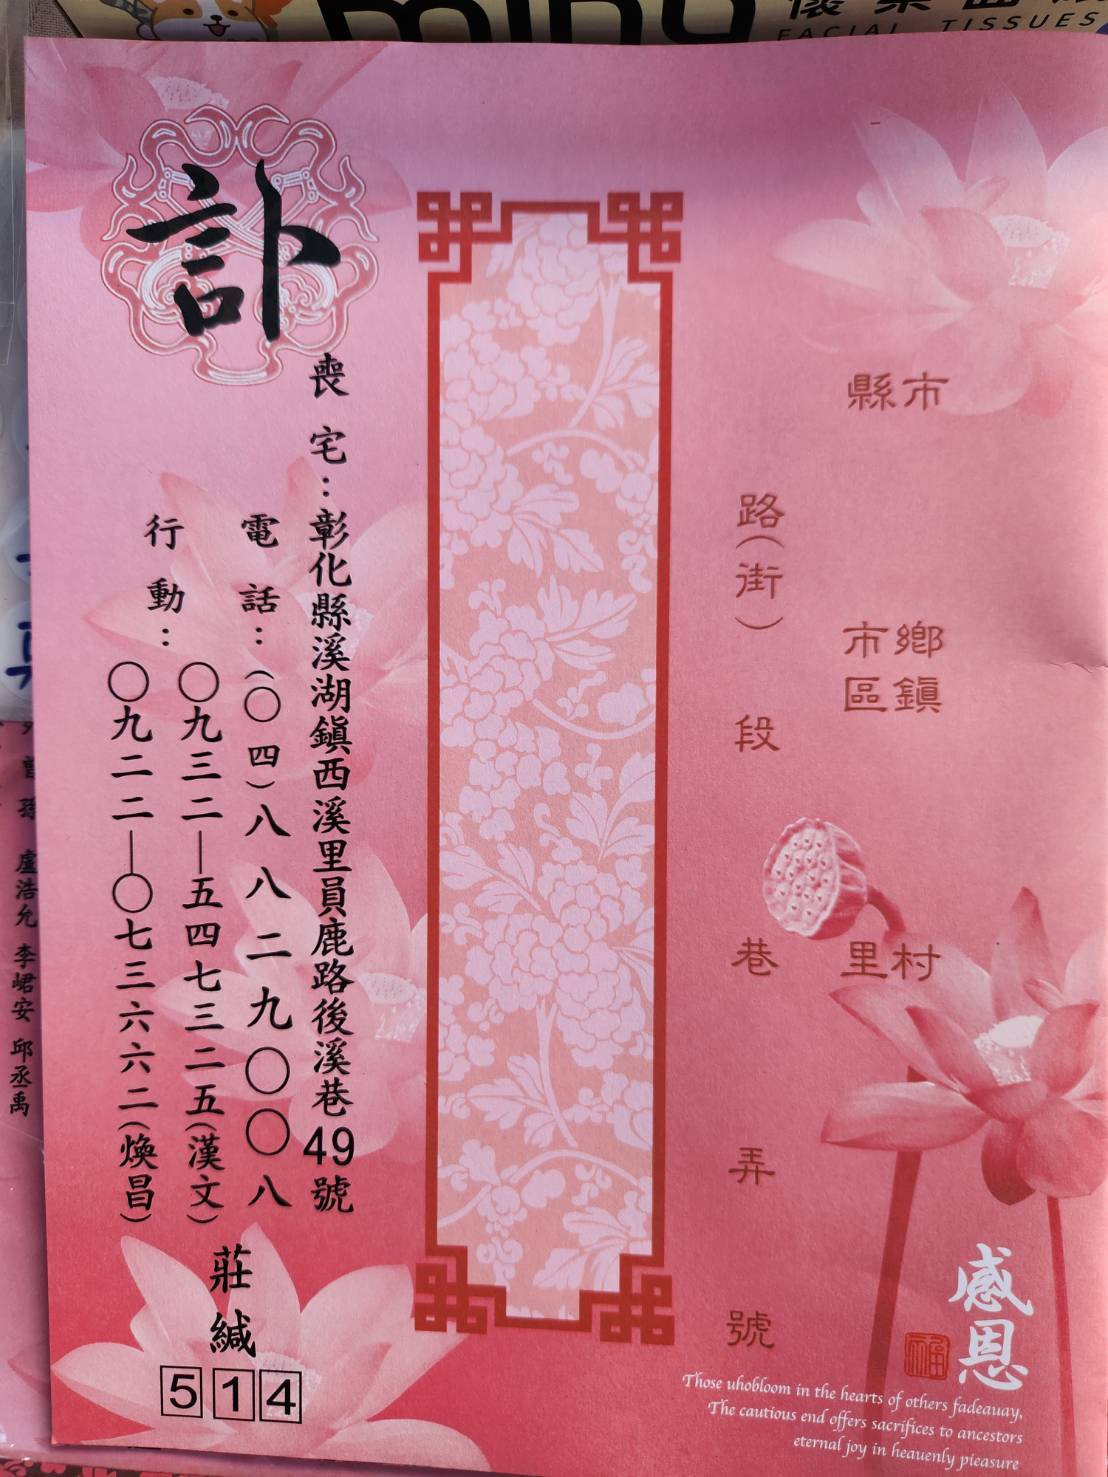 FACIAL TISSUES
縣市
鄉鎮
市區
村
里
路(街)
段
巷
弄
號
訃
喪宅：彰化縣溪湖鎮西溪里員鹿路後溪巷49號
電話：(〇四)八八二九〇〇八
行動：〇九三二—五四七三二五(漢文)
〇九二二—〇七三六六二(煥昌)
莊緘
514
感恩
福
Those uhobloom in the hearts of others fadeauay,
The cautious end offers sacrifices to ancestors
eternal joy in heauenly pieasure
曾孫 盧浩允 李峮安 邱丞禹